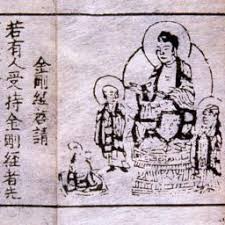 金剛經啓請
若有人受持金剛經者先